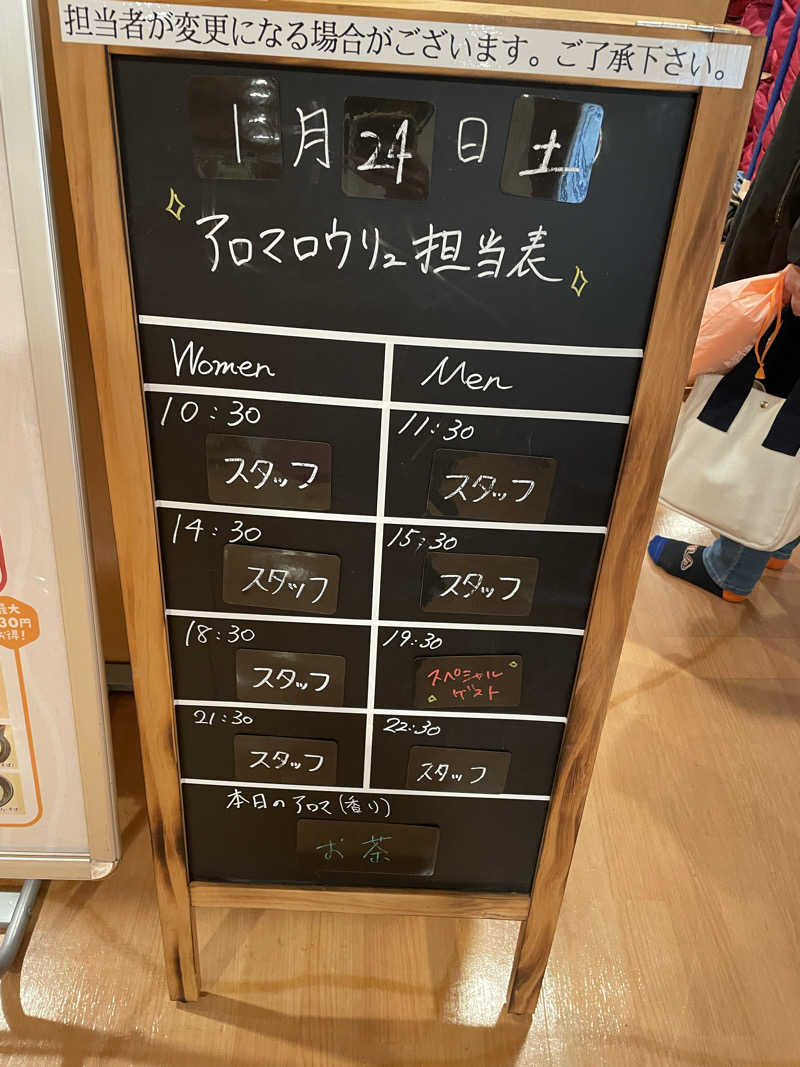 担当者が変更になる場合がございます。ご了承下さい。
1月24日 土
アロマロウリュ担当表
Women Men
10:30 11:30
スタッフ スタッフ
14:30 15:30
スタッフ スタッフ
18:30 19:30
スタッフ スペシャル
ゲスト
21:30 22:30
スタッフ スタッフ
本日のアロマ(香り)
お茶
最大
30円
お得!